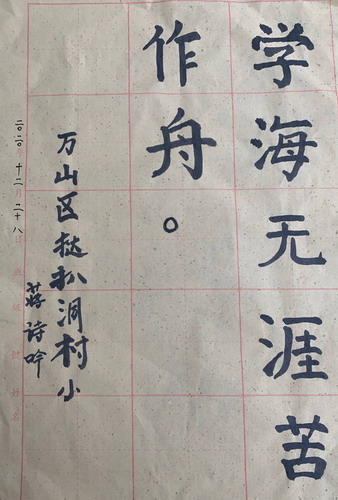 学海无涯苦
作舟。
万山区挞扒洞村小
蒋诗吟
二〇二〇年十二月二十八日